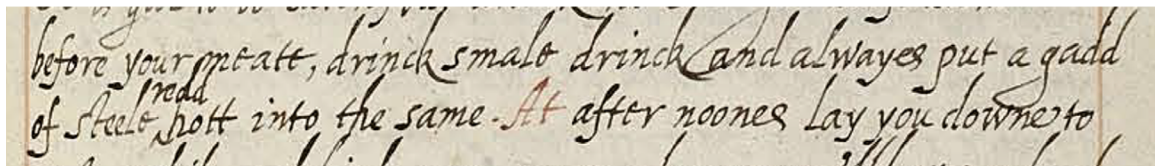 before your meate, drinck smale drinck and alwayes put a gadd
of steele read hott into the same. At after noones lay you downe to